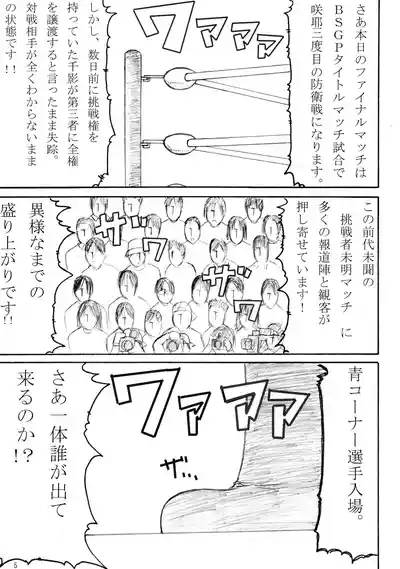 さあ本日のファイナルマッチは
BSGPタイトルマッチ試合で
咲耶二度目の防衛戦になります。
ワァァァ
しかし、数日前に挑戦権を
持っていた千影が第三者に全権
を譲渡すると言ったまま失踪。
対戦相手が全くわからないまま
の状態です!!
この前代未聞の
挑戦者未明マッチ に
多くの報道陣と観客が
押し寄せています!
ワァァ
ザワ
ザワ
異様なまでの
盛り上がりです!!
青コーナー選手入場。
ワァァァ
ザッ
さあ一体誰が出て
来るのか!?
5